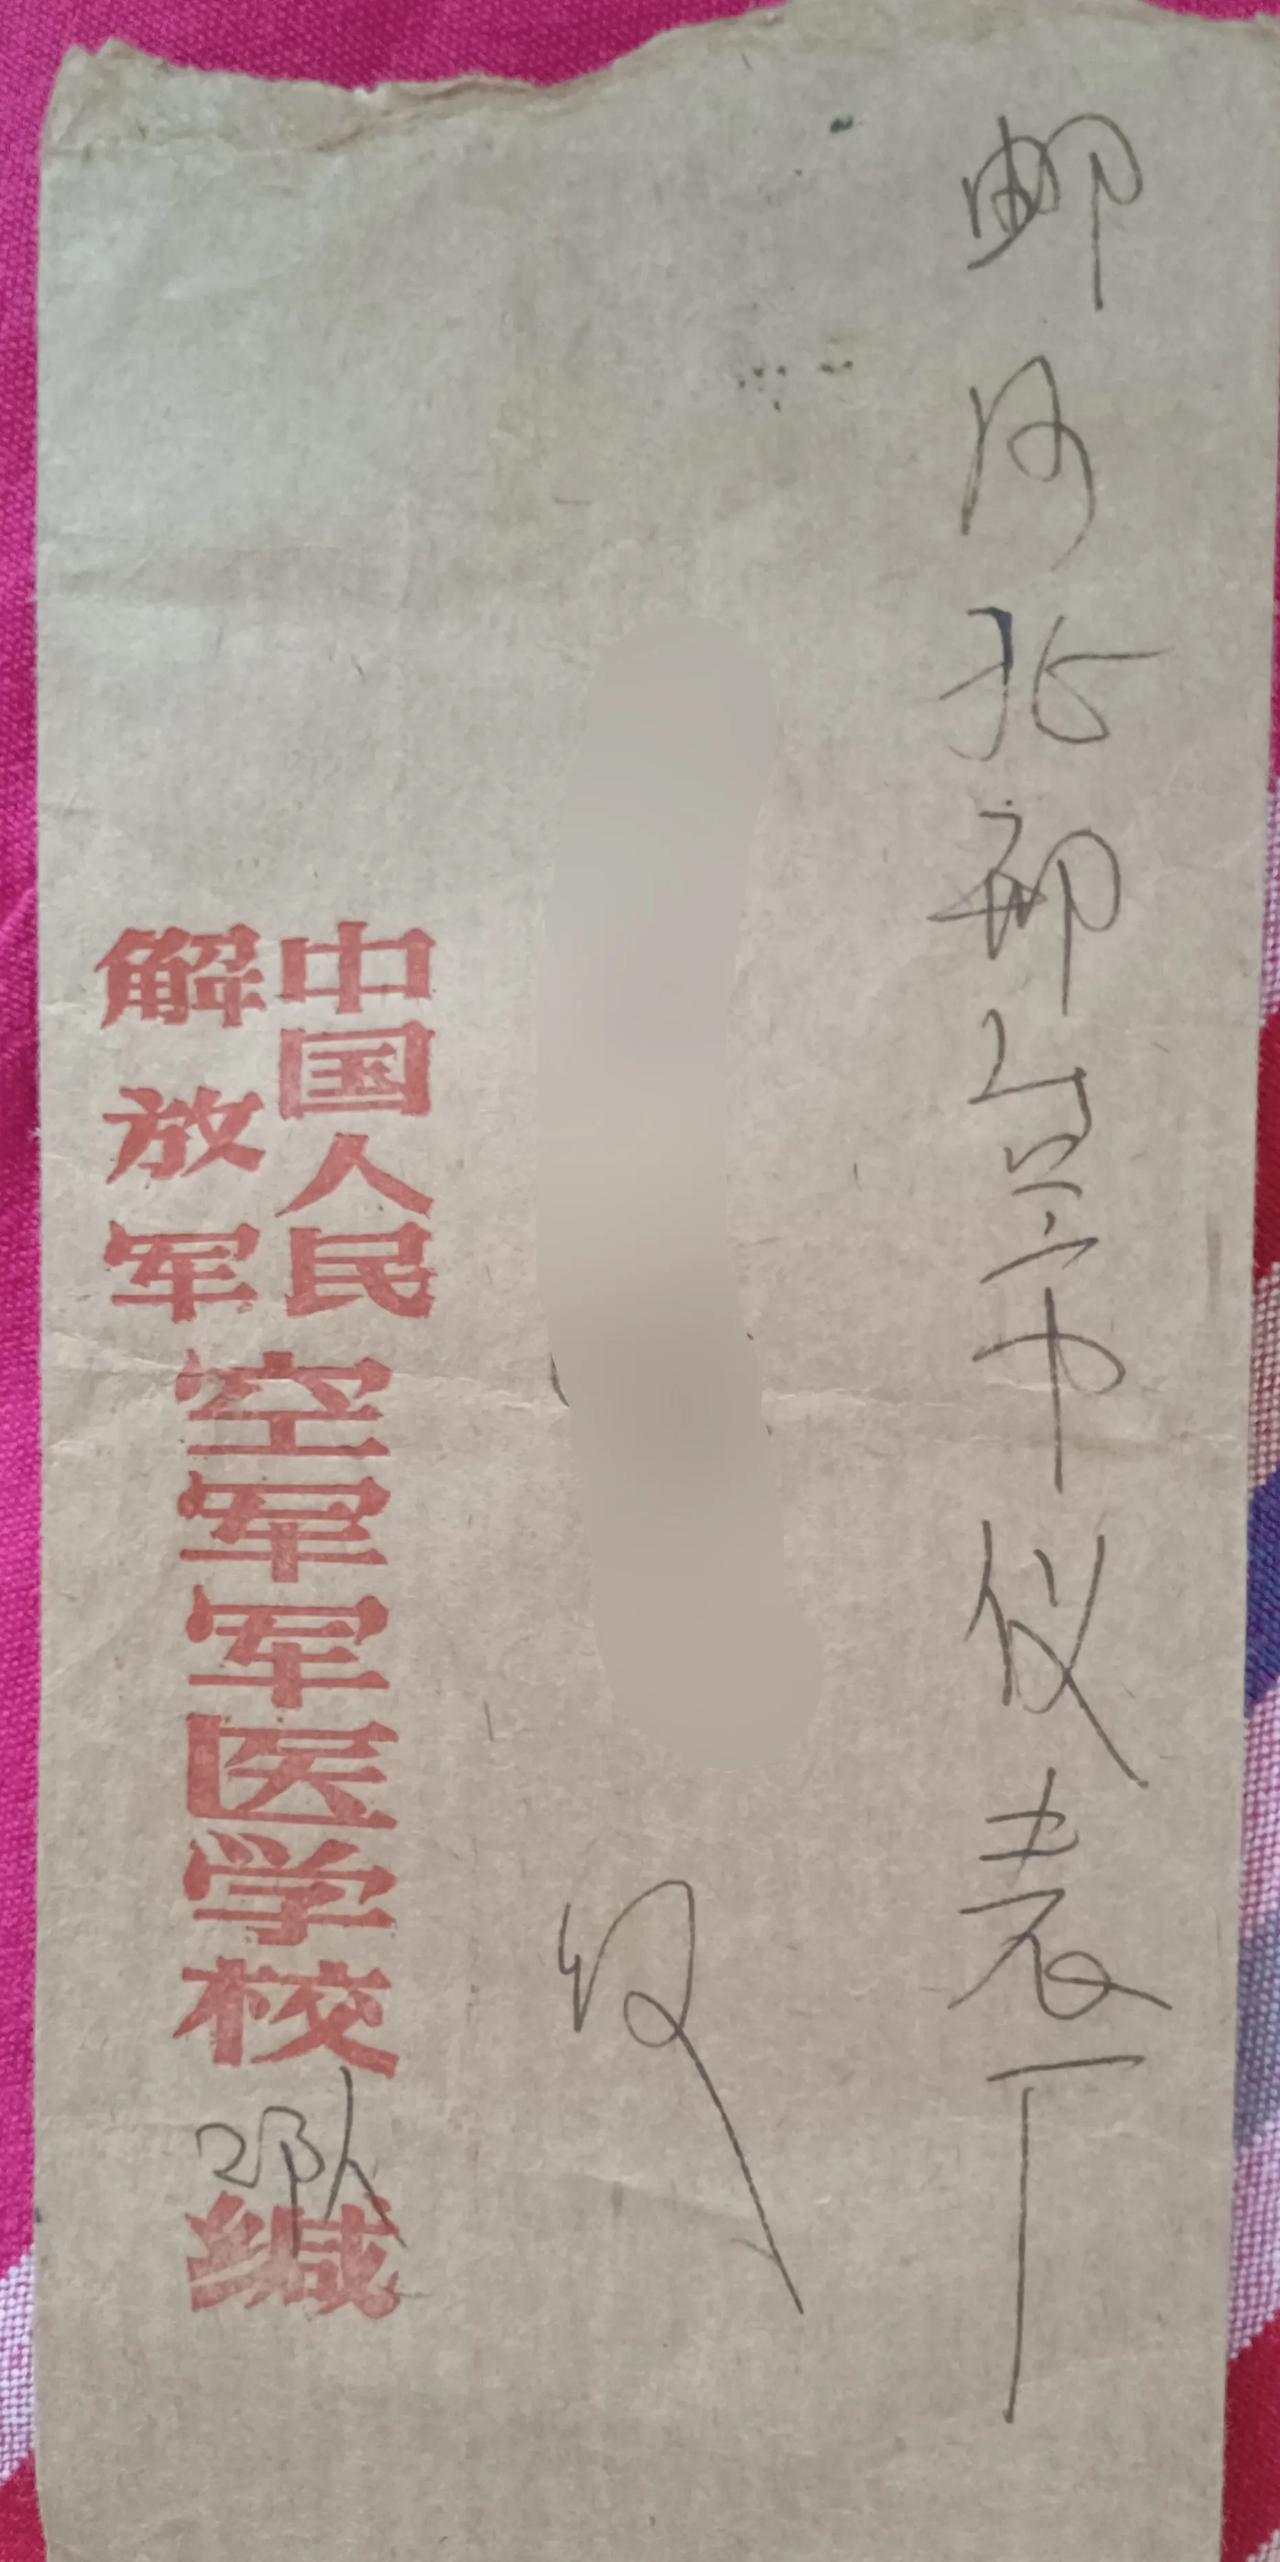 邮河北邢台市仪表厂
收
中国人民
解放军
空军军医学校
2队
缄